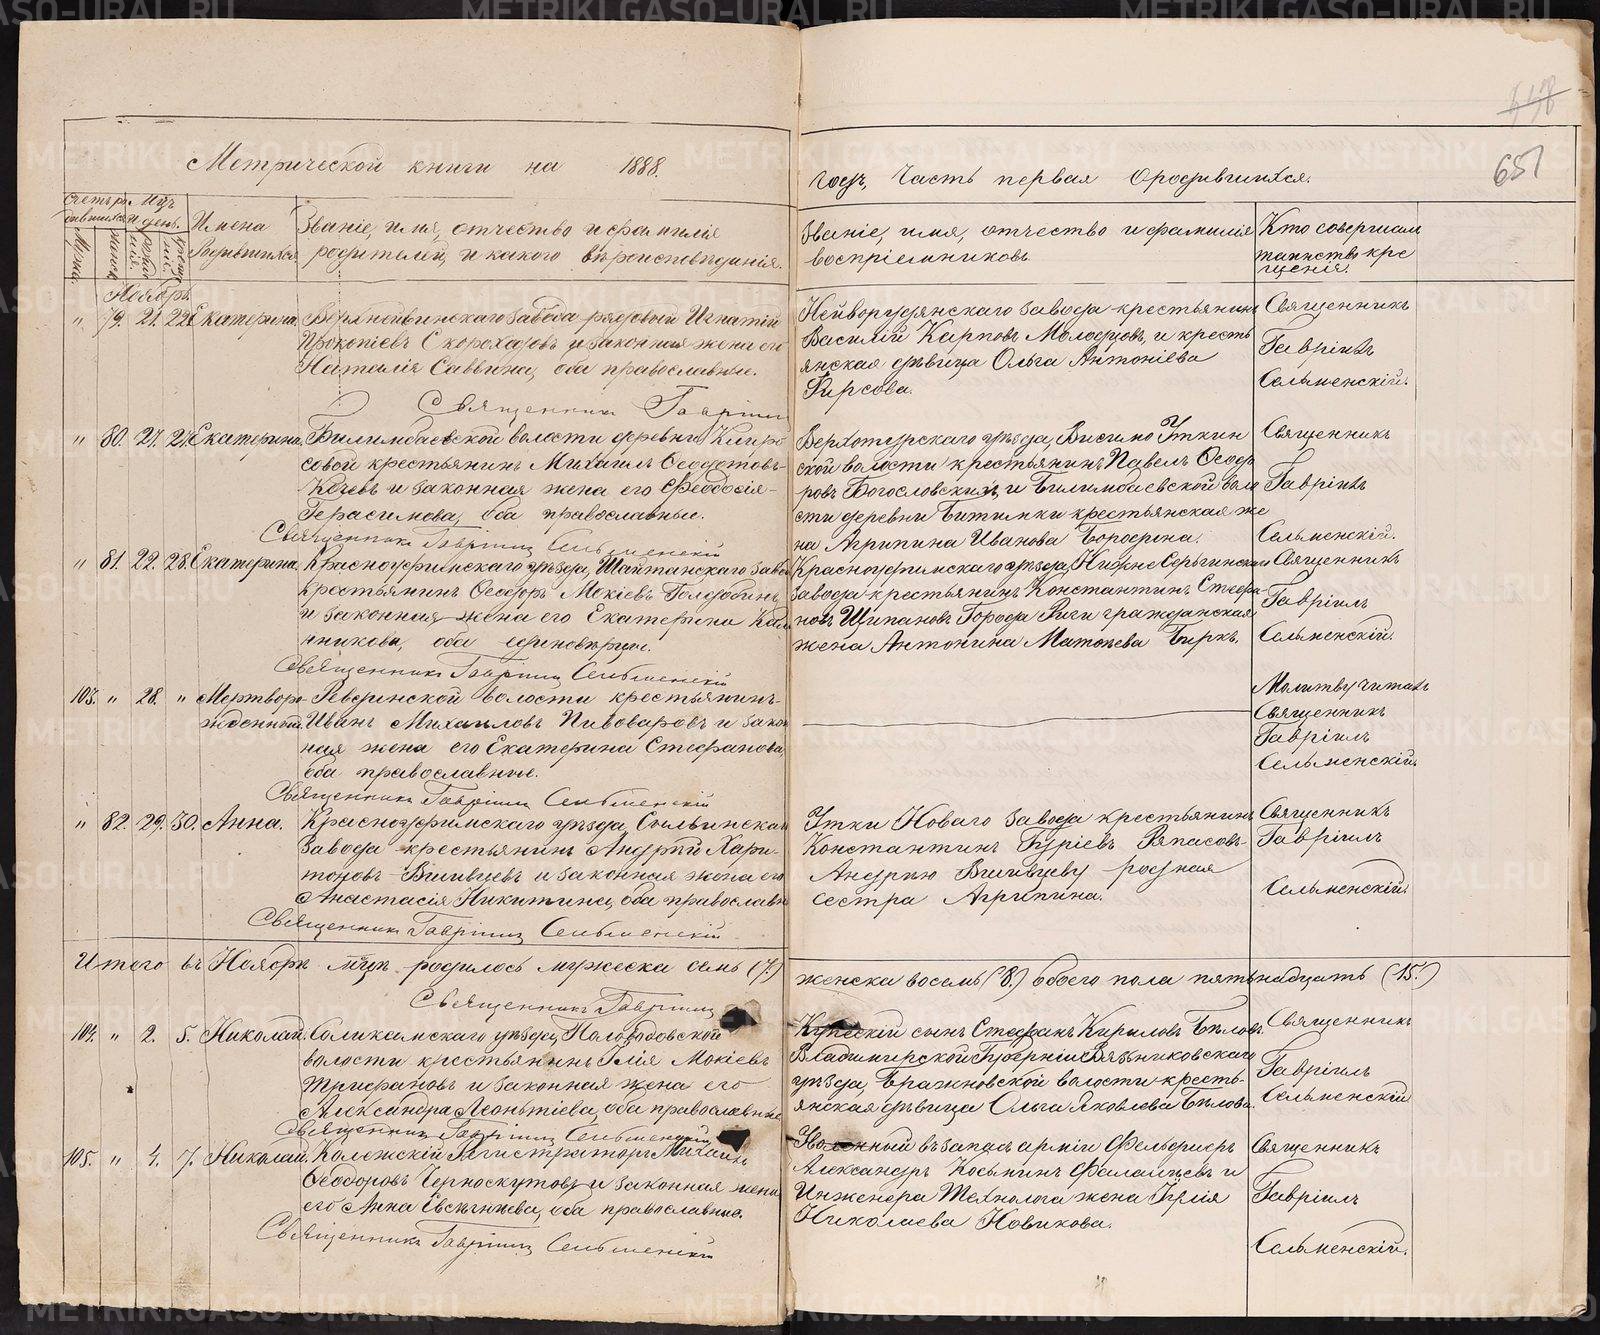 Метрической книги на 1888.
годъ, Часть первая о родившихся.
448
651
Счетъ ро-
дившихся
Мужск.
женск.
Мцъ
и день.
Имена
Родившихся
Званіе, имя, отчество и фамилія
родителей, и какого вѣроисповѣданія.
Званіе, имя, отчество и фамилія
воспріемниковъ
Кто совершалъ
таинство кре
щенія.
Ноябрь
" 79. 21. 22. Екатерина.
Верхнейвинскаго завода рядовой Игнатій
Прокопіевъ Скороходовъ и законная жена его
Наталія Саввина, оба православные.
Священникъ Гавріилъ
Нейворудянскаго завода крестьянинъ
Василій Карповъ Молодцовъ, и кресть
янская дѣвица Ольга Антоніева
Фирсова.
Священникъ
Гавріилъ
Сельменскій.
" 80. 27. 27. Екатерина.
Билимбаевской волости деревни
совой крестьянинъ Михаилъ Ѳеодотовъ
и законная жена его Феодосія
Герасимова, оба православные.
Священникъ Гавріилъ Сельменскій
Верхотурскаго уѣзда, Висимо Уткин
ской волости крестьянинъ Павелъ Ѳеодо
ровъ Богословскихъ, и Билимбаевской воло
сти деревни Битимки крестьянская же
на Агрипина Иванова Бородина.
Священникъ
Гавріилъ
Сельменскій.
" 81. 22. 28. Екатерина.
Красноуфимскаго уѣзда, Шайтанскаго завода
крестьянинъ Ѳеодоръ Мокіевъ Голдобинъ
и законная жена его Екатерина
нникова, оба единовѣрцы.
Священникъ Гавріилъ Сельменскій
Красноуфимскаго уѣзда, Нижне Сергинскаго
завода крестьянинъ Константинъ Стефа
новъ Щипановъ Города Риги гражданская
жена Антонина Матвѣева Биркъ.
Священникъ
Гавріилъ
Сельменскій.
103. " 28. " Мертворо
жденный.
Ревдинской волости крестьянинъ
Иванъ Михаиловъ Пивоваровъ и закон
ная жена его Екатерина Стефанова,
оба православные.
Священникъ Гавріилъ Сельменскій
Молитву читалъ
Священникъ
Гавріилъ
Сельменскій.
" 82. 29. 30. Анна.
Красноуфимскаго уѣзда, Сылвинскаго
завода крестьянинъ Андрей Хари-
тоновъ Вшивцевъ и законная жена его
Анастасія Никитина, оба православн
Священникъ Гавріилъ Сельменскій
Утки Новаго завода крестьянинъ
Константинъ Гуріевъ Ряпасовъ
Андрею Вшивцеву родная
сестра Агрипина.
Священникъ
Гавріилъ
Сельменскій.
Итого въ Ноябрѣ мцѣ родилось мужеска семь (7.)
женска восемь (8.) обоего пола пятьнадцать (15.)
Священникъ Гавріилъ
104. " 2. 5. Николай.
Соликамскаго уѣзда, Половодовской
волости крестьянинъ Илія Мокіевъ
Трифановъ и законная жена его
Александра Леонтіева, оба православные
Священникъ Гавріилъ Сельменскій
Купескій сынъ Стефанъ Кириловъ Бѣловъ.
Владимирской Губерніи Вязниковскаго
уѣзда, волости кресть-
янская дѣвица Ольга Яковлева Бѣлова.
Священникъ
Гавріилъ
Сельменскій
105. " 4. 7. Николай.
Коллежскій Регистраторъ Михаилъ
Ѳеодоровъ Черноскутовъ и законная жена
его Анна Евсигніева, оба православные.
Священникъ Гавріилъ Сельменскій
въ запасъ арміи Фельдшеръ
Александръ Косьминъ и
Инженера Технолога жена Юлія
Николаева Новикова.
Священникъ
Гавріилъ
Сельменскій.
METRIKI.GASO-URAL.RU